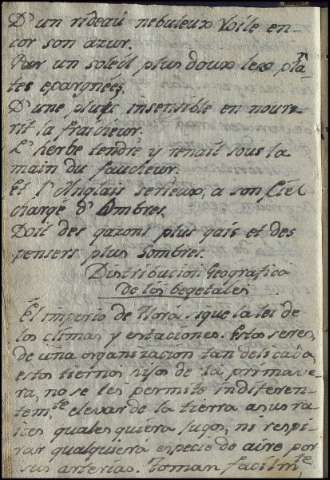 D'un rideau nebuleux voile en-
cor son azur.
Par un soleil plus doux les plan
tes epargnées,
D'une pluye insensible en nourr
rit la fraicheur.
L'herbe tendre y renait sous la
main du faucheur.
Et l'Anglais serieux, a son Ciel
chargé d'Ombres.
Doit des gazons plus gais et des
pensers plus Sombres.
Distribucion Geografica
de los begetales
El imperio de Flora sigue la lei de
los climas y estaciones. Estos seres,
de una organizacion tan delicada,
estos tiernos hijos de la primave-
ra, no se les permite indiferen-
tem.te elevar de la tierra a sus ra
ices qualesquiera jugos, ni respi-
rar qualquiera especie de aire por
sus arterias. Toman facilm.te